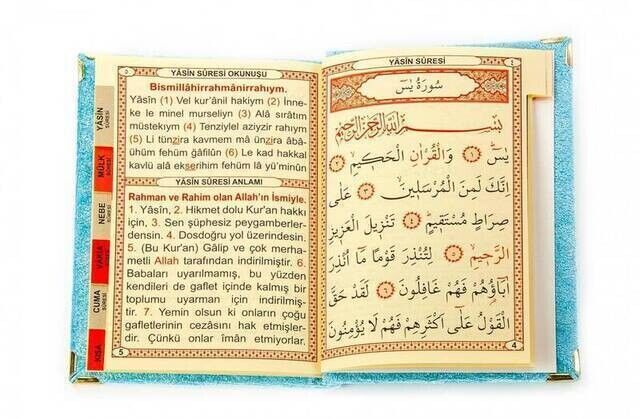 YÂSÎN SÛRESİ
٤
سُورَةُ يٰسٓ
بِسْمِ اللّٰهِ الرَّحْمٰنِ الرَّحِيمِ
يٰسٓ ﴿١﴾ وَالْقُرْاٰنِ الْحَكِيمِ ﴿٢﴾
اِنَّكَ لَمِنَ الْمُرْسَلِينَ ﴿٣﴾ عَلٰى
صِرَاطٍ مُسْتَقِيمٍ ﴿٤﴾ تَنْزِيلَ الْعَزِيزِ
الرَّحِيمِ ﴿٥﴾ لِتُنْذِرَ قَوْمًا مَٓا اُنْذِرَ
اٰبَٓاؤُهُمْ فَهُمْ غَافِلُونَ ﴿٦﴾ لَقَدْ حَقَّ
الْقَوْلُ عَلٰٓى اَكْثَرِهِمْ فَهُمْ لَا يُؤْمِنُونَ
4
٥
YÂSÎN SÛRESİ OKUNUŞU
Bismillâhirrahmânirrahıym.
Yâsîn (1) Vel kur'ânil hakiym (2) İnne-
ke le minel murseliyn. (3) Alâ sırâtım
müstekıym (4) Tenziylel aziyzir rahıym
(5) Li tünzira kavmem mâ ünzira âbâ-
ühüm fehüm ğâfilûn (6) Le kad hakkal
kavlü alâ ekserihim fehüm lâ yü'minûn
YÂSÎN SÛRESİ ANLAMI
Rahman ve Rahim olan Allah'ın İsmiyle.
1. Yâsîn, 2. Hikmet dolu Kur'an hakkı
için, 3. Sen şüphesiz peygamberler-
densin. 4. Dosdoğru yol üzerindesin.
5. (Bu Kur'an) Gâlip ve çok merha-
metli Allah tarafından indirilmiştir. 6.
Babaları uyarılmamış, bu yüzden
kendileri de gaflet içinde kalmış bir
toplumu uyarman için indirilmiş-
tir. 7. Yemin olsun ki onların çoğu
gafletlerinin cezâsını hak etmişler-
dir. Çünkü onlar îmân etmiyorlar.
5
YÂSÎN
SÛRESİ
MÜLK
SÛRESİ
NEBE
SÛRESİ
VÂKIA
SÛRESİ
CUMA
SÛRESİ
KISA